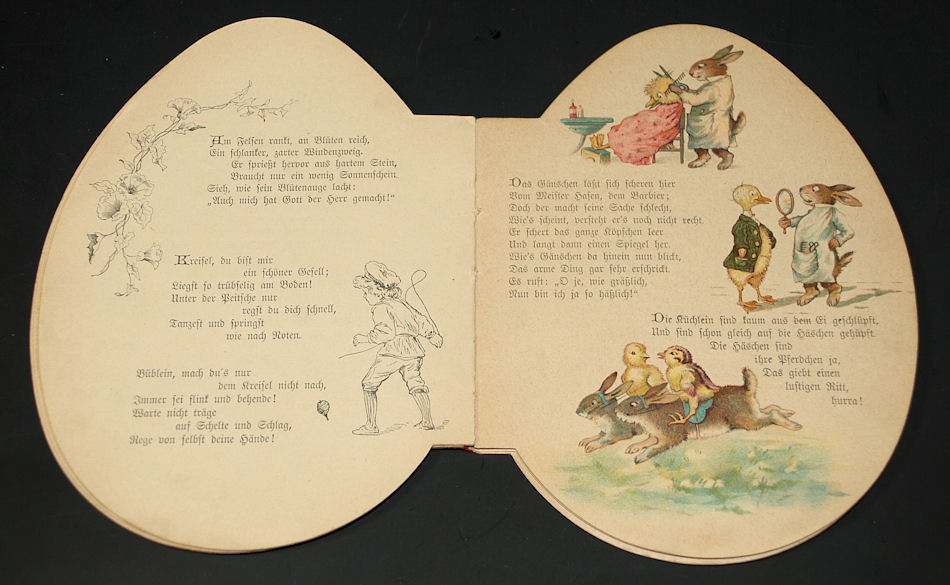 Am Felsen rankt, an Blüten reich,
Ein schlanker, zarter Windenzweig.
Er sprießt hervor aus hartem Stein,
Braucht nur ein wenig Sonnenschein.
Sieh, wie sein Blütenauge lacht:
„Auch mich hat Gott der Herr gemacht!“
Kreisel, du bist mir
ein schöner Gesell;
Liegst so trübselig am Boden!
Unter der Peitsche nur
regst du dich schnell,
Tanzest und springst
wie nach Noten.
Büblein, mach du's nur
dem Kreisel nicht nach,
Immer sei flink und behende!
Warte nicht träge
auf Schelte und Schlag,
Rege von selbst deine Hände!
Das Gänschen läßt sich scheren hier
Vom Meister Hasen, dem Barbier;
Doch der macht seine Sache schlecht,
Wie's scheint, versteht er's noch nicht recht.
Er schert das ganze Köpfchen leer
Und langt dann einen Spiegel her.
Wie's Gänschen da hinein nun blickt,
Das arme Ding gar sehr erschrickt.
Es ruft: „O je, wie gräßlich,
Nun bin ich ja so häßlich!“
Die Küchlein sind kaum aus dem Ei geschlüpft,
Und sind schon gleich auf die Häschen gehüpft.
Die Häschen sind
ihre Pferdchen ja,
Das giebt einen
lustigen Ritt,
hurra!